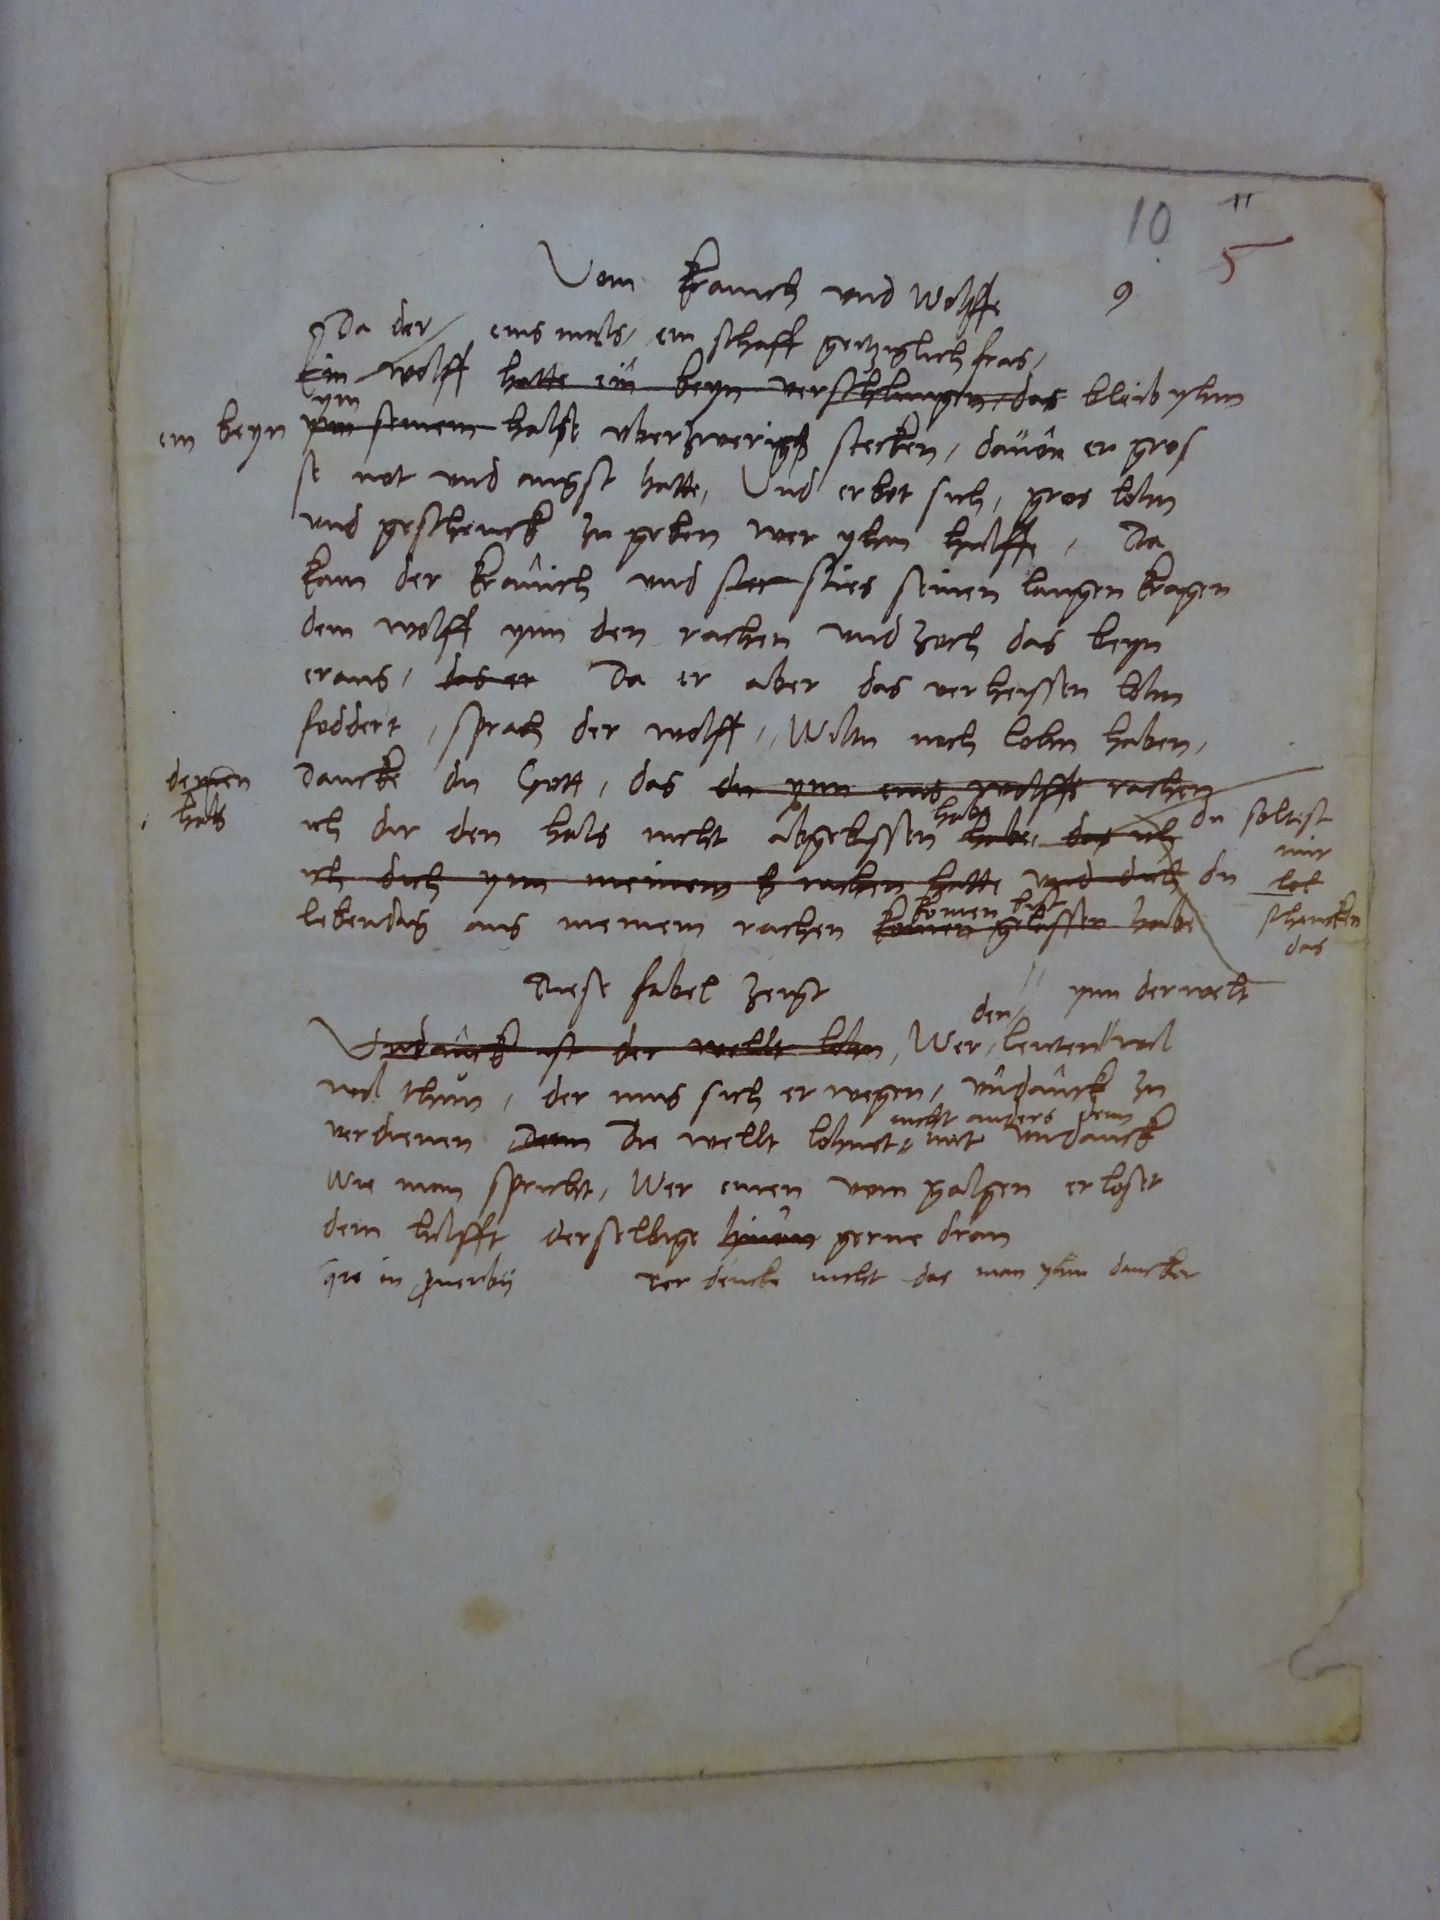 10 11
5
9
Vom kranich und Wolffe
Da der eins mals, ein schaff geitziglich fras,
Ein wolff hatte ein beyn verschlungen, das bleib yhm
ym
ein beyn ym seinem halse uberzwerigs stecken, davon er gros
se not und angst hatte, Und erbot sich, gros lohn
und geschenck zu geben wer yhm hulffe, Da
kam der kranich und sties seinen langen kragen
dem wolff ynn den rachen und zoch das beyn
eraus, das er Da er aber das verheissen lohn
foddert, sprach der wolff, Wiltu noch lohn haben,
dancke du Gott, das du ynn eins wolffs rachen
hals
habe
ich dir den hals nicht abgebissen habe, das ich du soltest
mir
ich dich ynn meinem rachen hatte und dich du
schencken
das
komen
lebendig aus meinem rachen komen gelassen habe
Diese fabel zeigt
den ynn der welt
Undanck ist der wellt lohn, Wer leuten wil
wol thun, der mus sich erwegen, undanck zu
nicht anders denn
verdienen Denn Die wellt lohnet mit undanck
Wie man spricht, Wer einen vom galgen erloset
dem hilfft derselbige gerne dran
dencke nicht das man yhm dancket